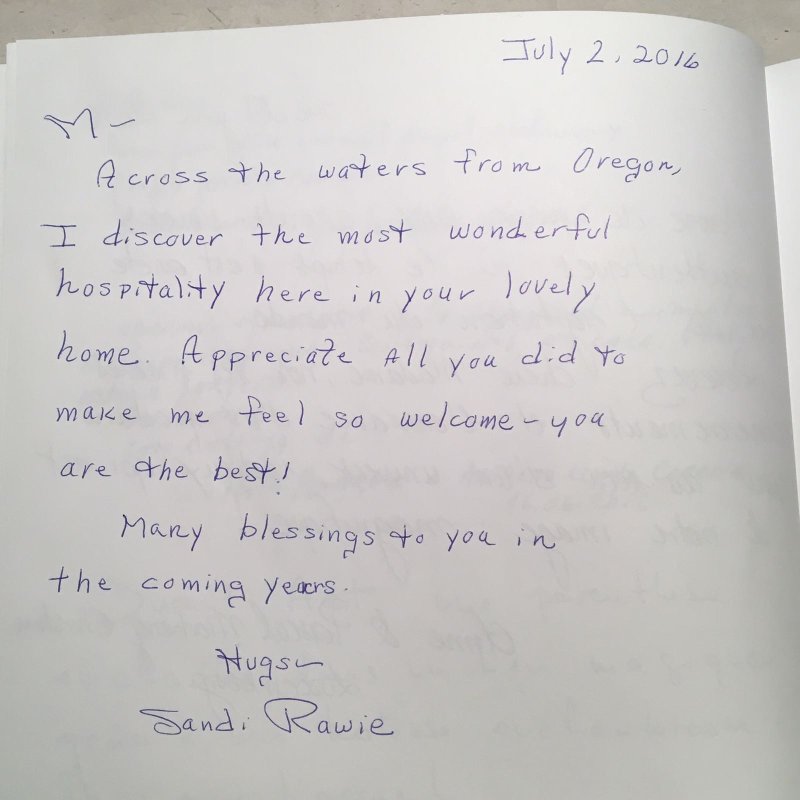 July 2, 2016
M-
Across the waters from Oregon,
I discover the most wonderful
hospitality here in your lovely
home. Appreciate All you did to
make me feel so welcome - you
are the best!
Many blessings to you in
the coming years.
Hugs~
Sandi Rawie